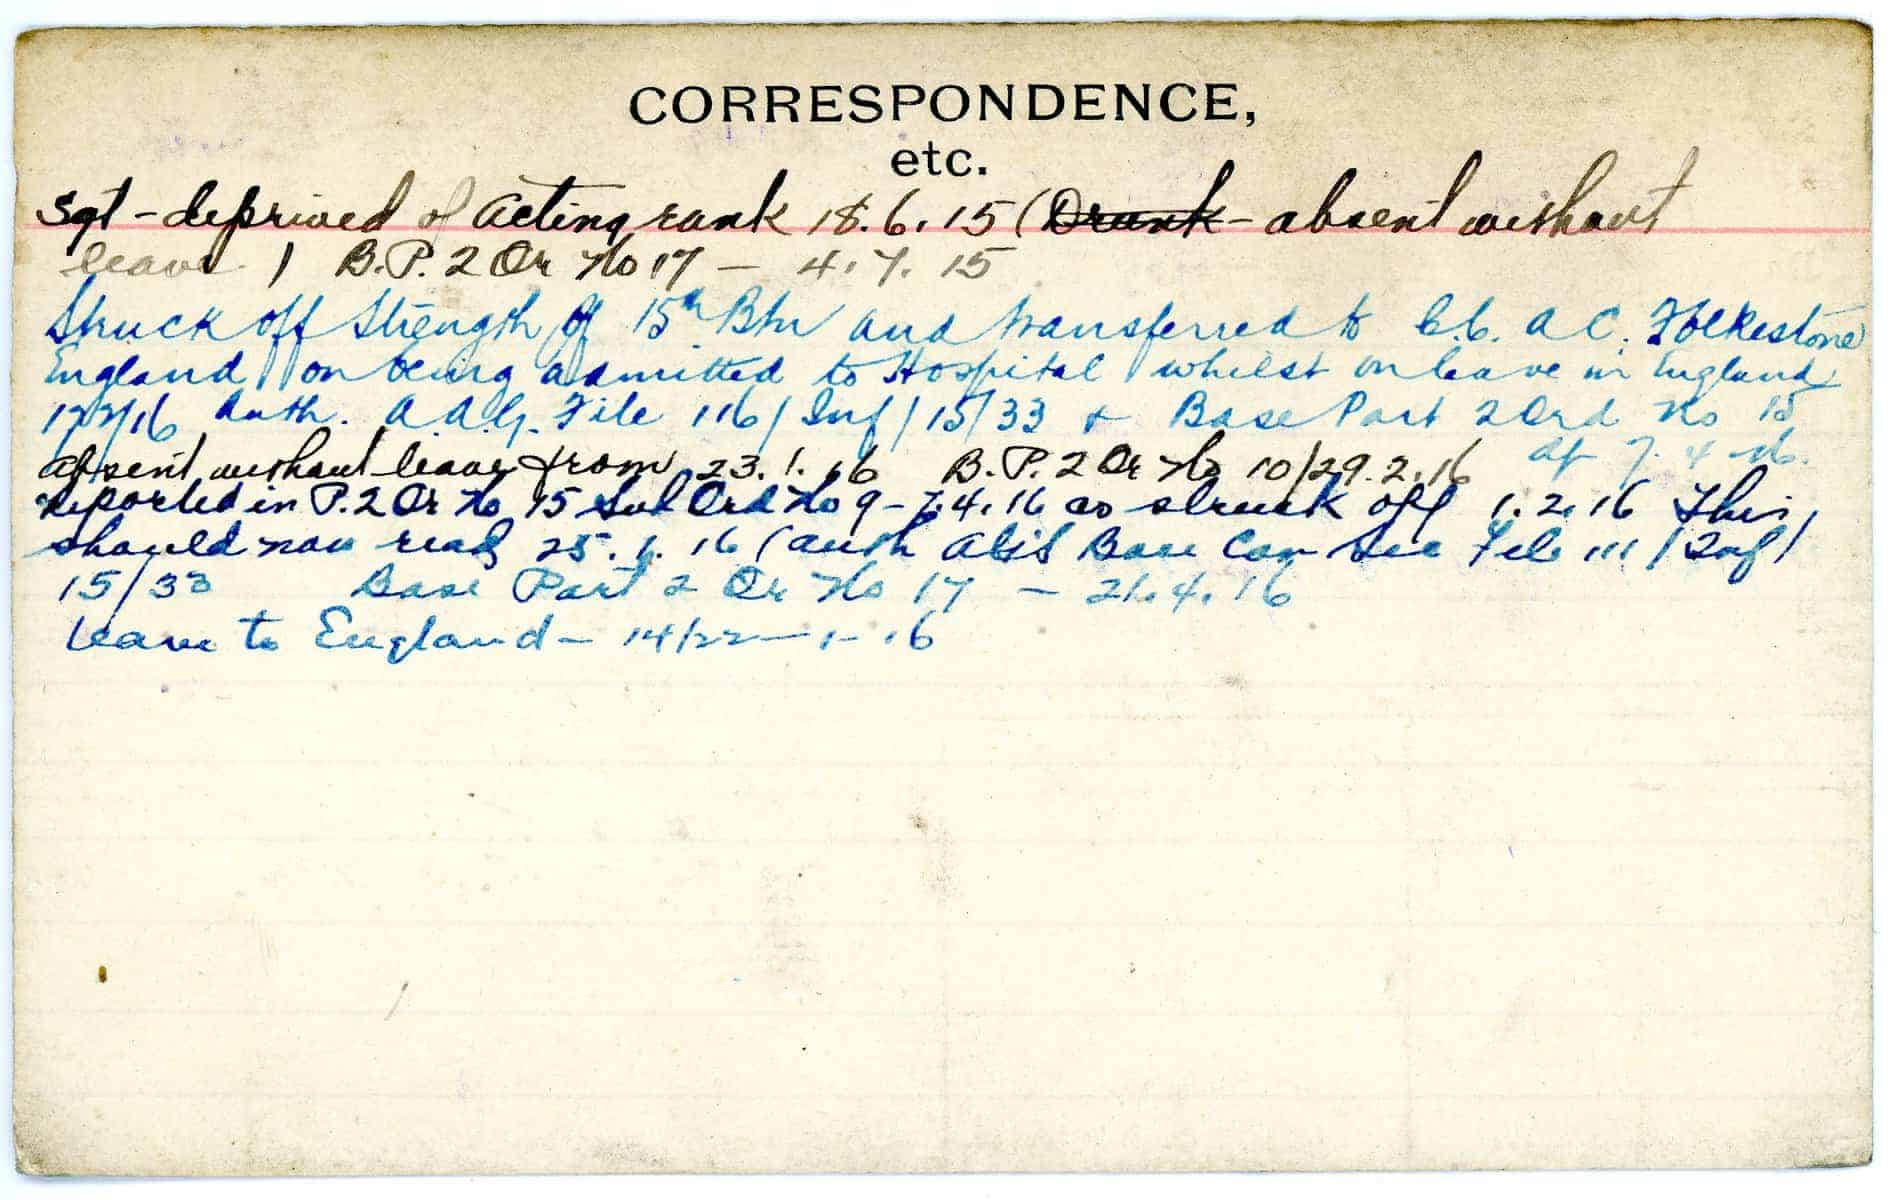 CORRESPONDENCE,
etc.
Sgt - deprived of Acting rank 18.6.15 (Drunk - absent without
leave ) B.P. 2 Or No 17 - 4.7.15
Struck off Strength of 15th Btn and transferred to C.C. A C. Folkestone
England on being admitted to Hospital whilst on leave in England
Auth. A.A.G. File 116/Inf/15/33 & Base Part 2 Ord No 15
of 7.4.16.
absent without leave from 23.1.16 B.P. 2 Or No 10/29.2.16
reported in P.2 Or No 15 Sub Ord No 9 - 7.4.16 as struck off 1.2.16 This
should now read 25.1.16 (auth Base File 111/Inf/
15/33 Base Part 2 Or No 17 - 21.4.16
leave to England - 14/22 - 1 - 16